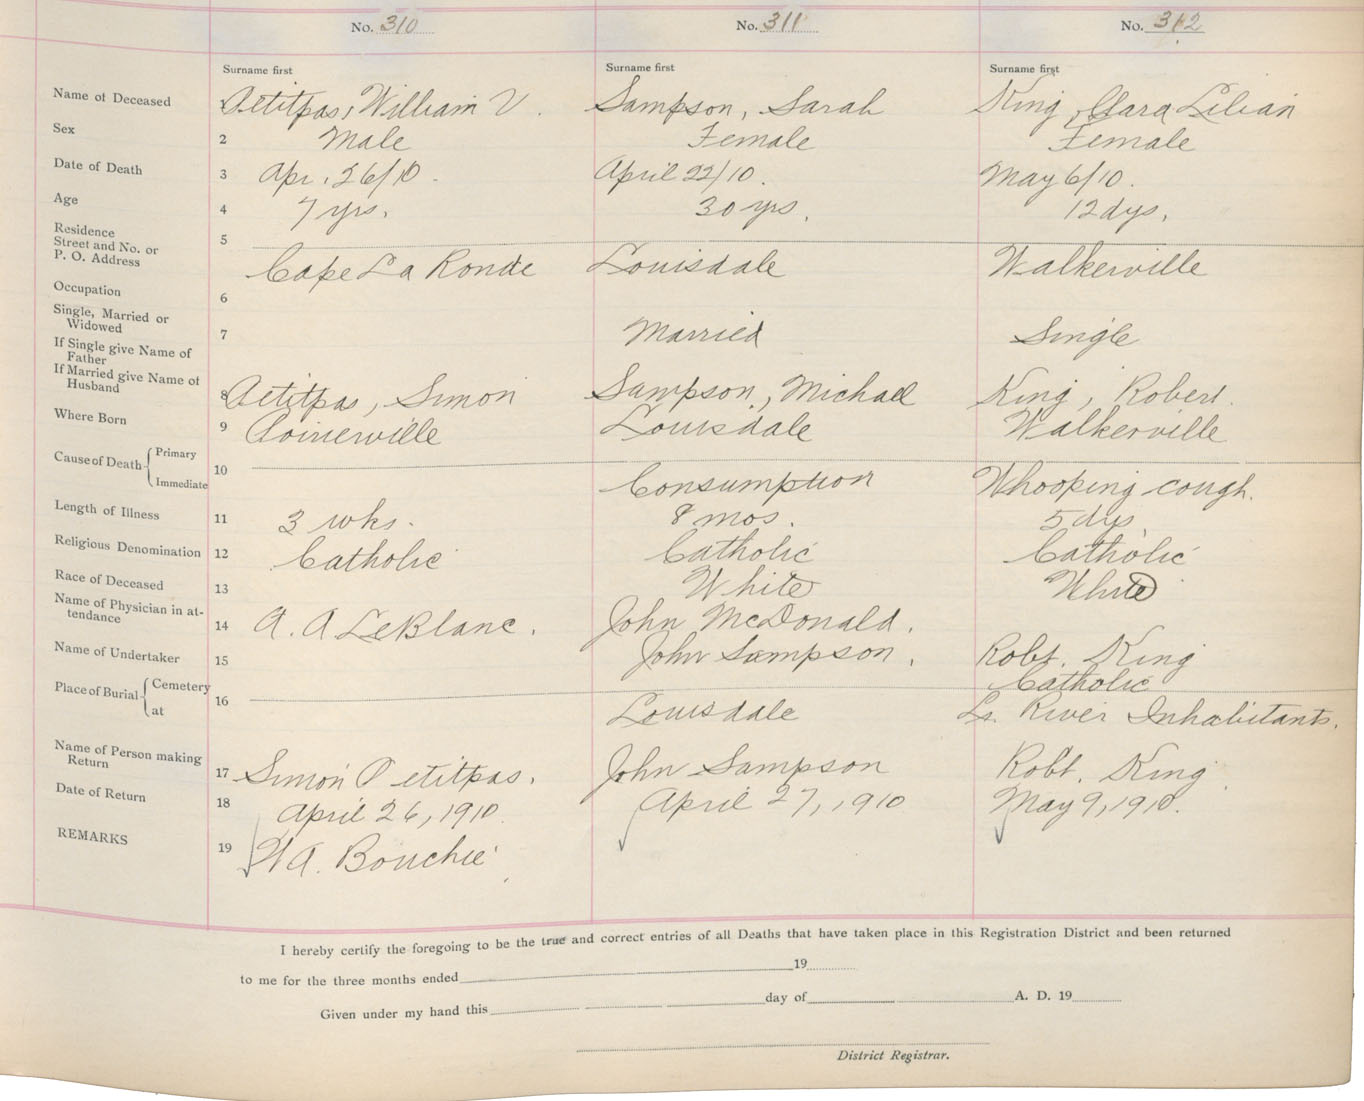 No. 310 No. 311 No. 312
Surname first Surname first Surname first
Name of Deceased Petitpas, William V. Sampson, Sarah King, Clara Lilian
Sex 2 Male Female Female
Date of Death 3 Apr. 26/10. April 22/10. May 6/10.
Age 4 7 yrs. 30 yrs. 12 dys.
Residence 5
Street and No. or
P. O. Address Cape La Ronde Louisdale Walkerville
Occupation 6
Single, Married or
Widowed 7 Married Single
If Single give Name of
Father
If Married give Name of
Husband 8 Petitpas, Simon Sampson, Michael King, Robert.
Where Born 9 Poirierville Louisdale Walkerville
Cause of Death Primary 10
Immediate Consumption Whooping cough.
Length of Illness 11 3 wks. 8 mos. 5 dys.
Religious Denomination 12 Catholic Catholic Catholic
Race of Deceased 13 White White
Name of Physician in at-
tendance 14 A. A LeBlanc. John McDonald.
Name of Undertaker 15 John Sampson. Robt. King
Place of Burial Cemetery 16 Catholic
at Louisdale Lr. River Inhabitants.
Name of Person making
Return 17 Simon Petitpas. John Sampson Robt. King
Date of Return 18 April 26, 1910 April 27, 1910 May 9, 1910.
REMARKS 19 W A. Bouchie
I hereby certify the foregoing to be the true and correct entries of all Deaths that have taken place in this Registration District and been returned
to me for the three months ended 19
Given under my hand this day of A. D. 19
District Registrar.